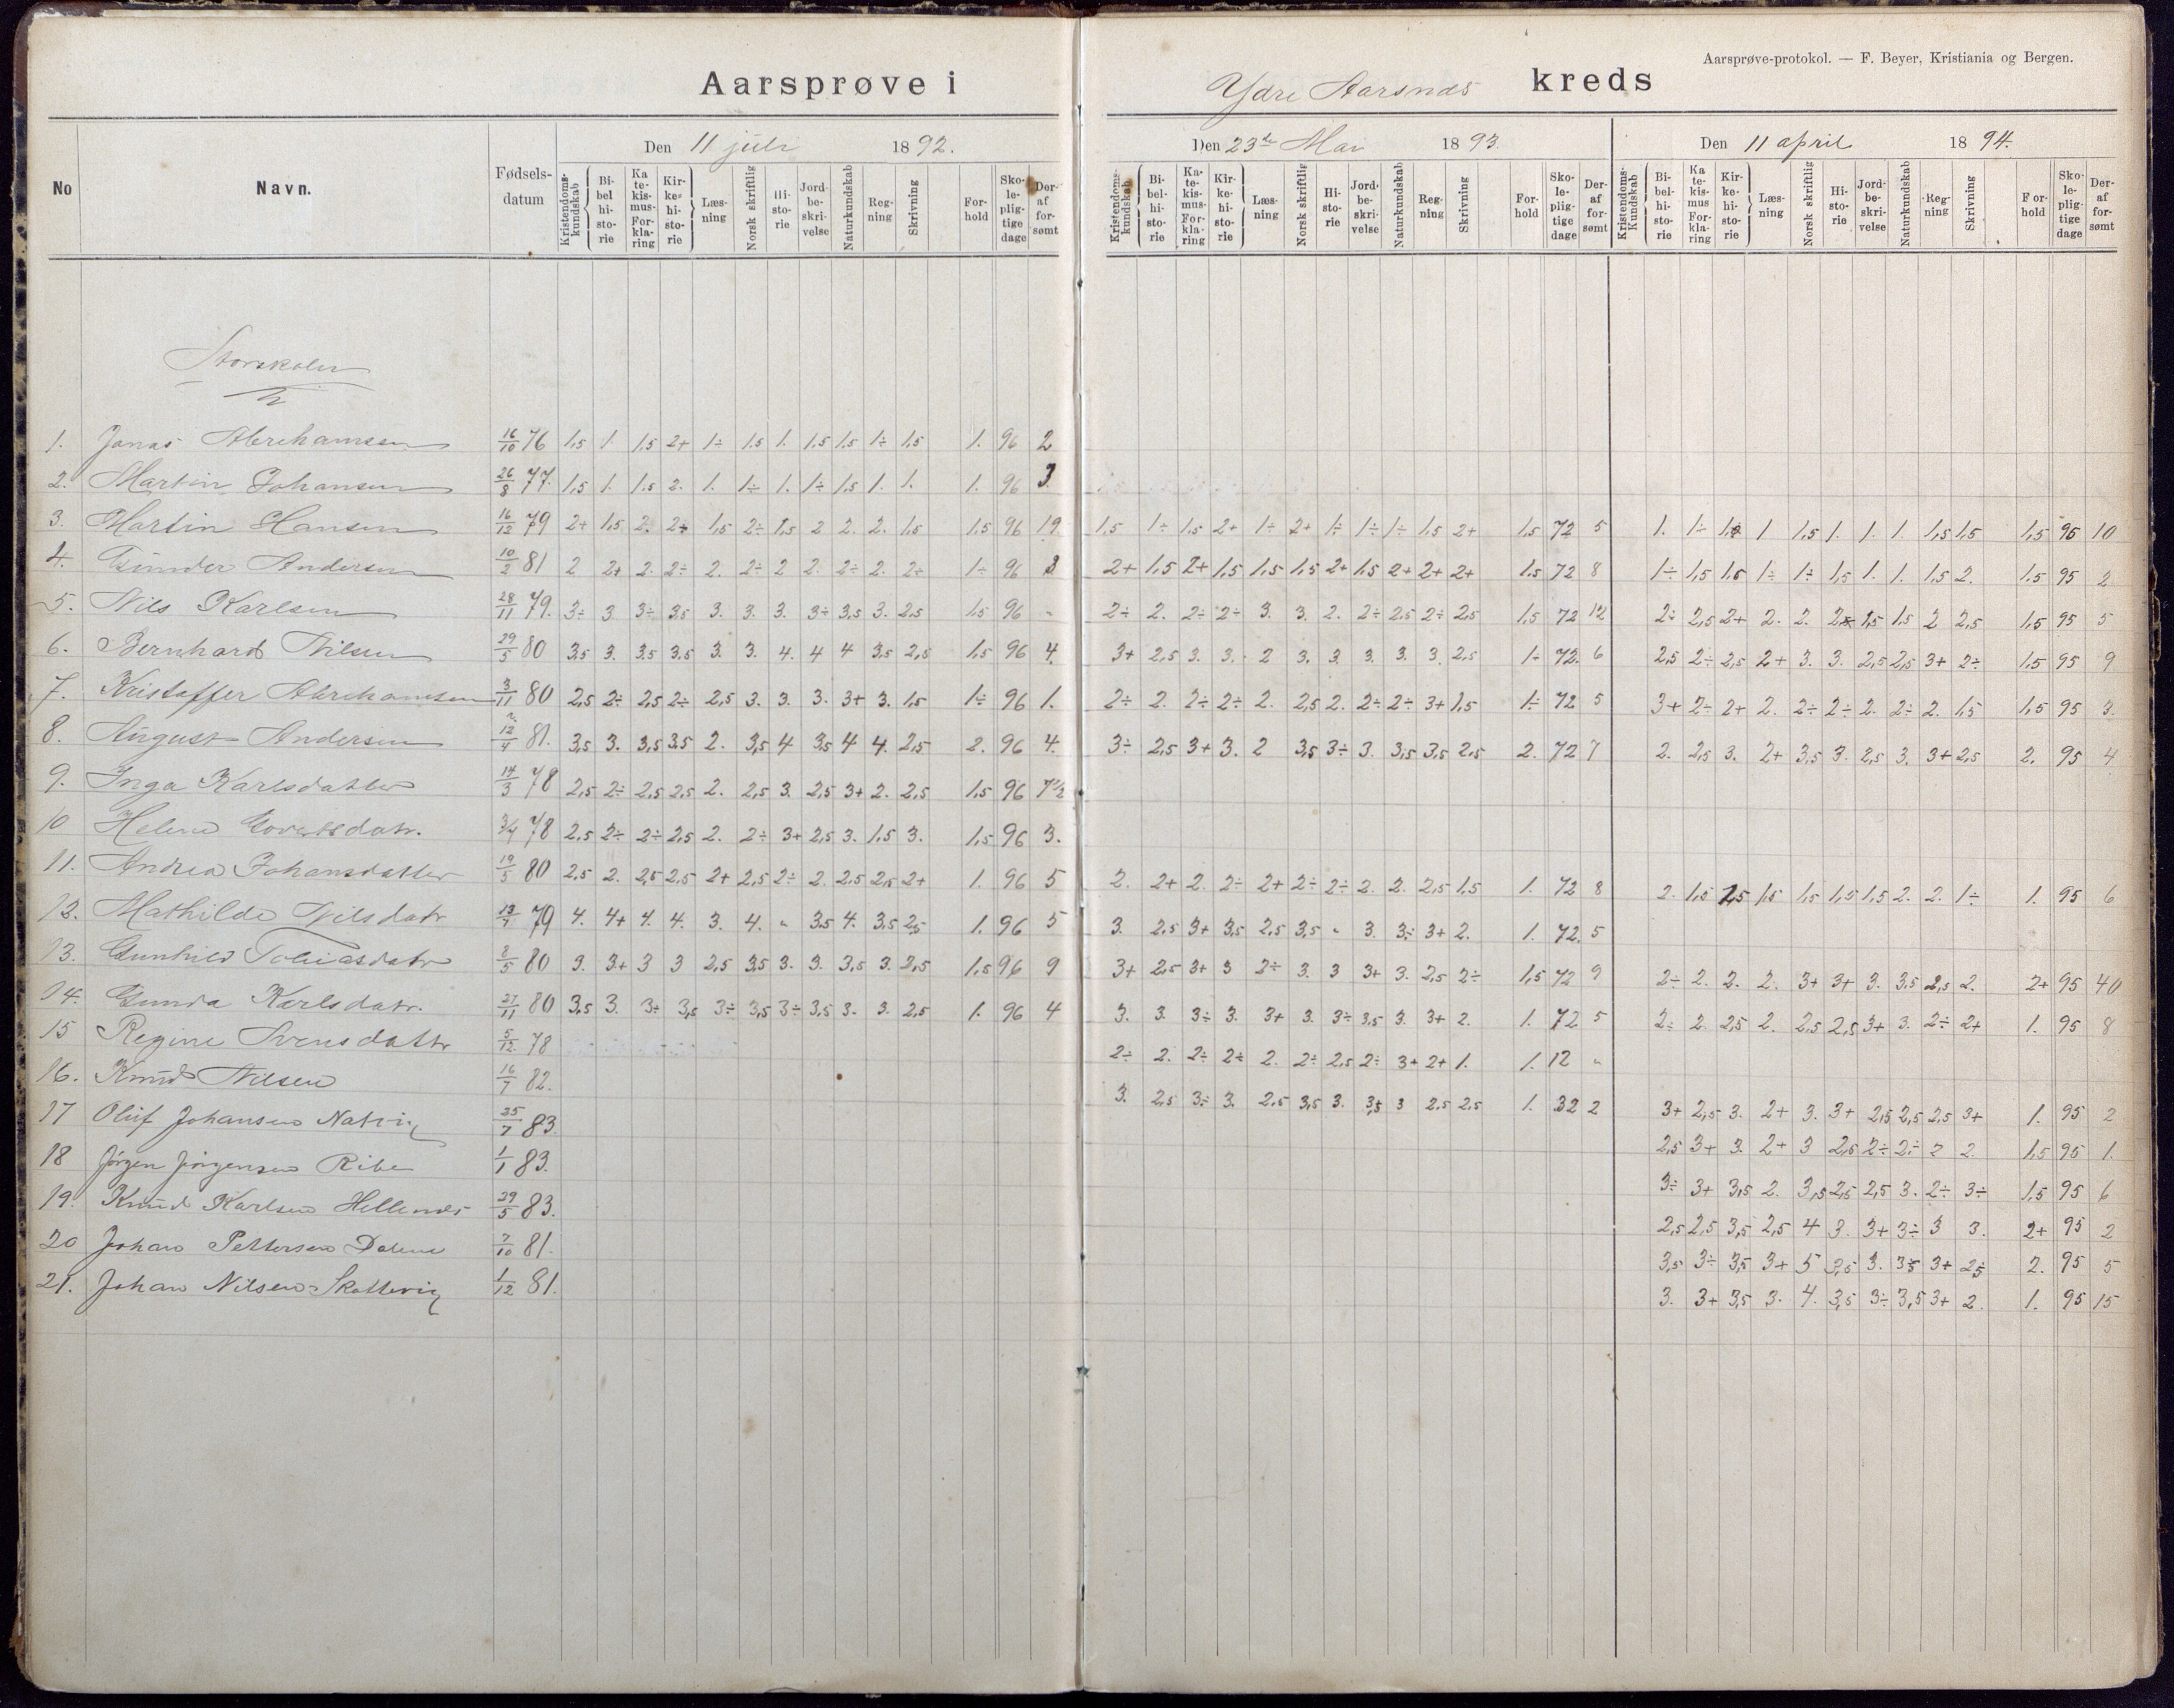 Aarsprøve-protokol. — F. Beyer, Kristiania og Bergen.
Aarsprøve i Ydre Aarsnes kreds
No Navn. Fødselsdatum Den 11 juli 1892. Den 23de Mai 1893 Den 11 april 1894.
Kristendomskundskab Bibelhistorie Katekismus-Forklaring Kirkehistorie Læsning Norsk skriftlig Historie Jordbeskrivelse Naturkundskab Regning Skrivning Forhold Skolepligtige dage Deraf forsømt
Kristendomskundskab Bibelhistorie Katekismus-Forklaring Kirkehistorie Læsning Norsk skriftlig Historie Jordbeskrivelse Naturkundskab Regning Skrivning Forhold Skolepligtige dage Deraf forsømt
Kristendoms-Kundskab Bibelhistorie Katekismus Forklaring Kirkehistorie Læsning Norsk skriftlig Historie Jordbeskrivelse Naturkundskab Regning Skrivning Forhold Skolepligtige dage Deraf forsømt
Storskolen
1. Jonas Abrehamsen 16/10 76 1,5 1. 1,5 2+ 1÷ 1.5 1. 1,5 1,5 1÷ 1,5 1. 96 2
2. Martin Johansen 26/8 77. 1,5 1. 1.5 2. 1. 1÷ 1. 1÷ 1,5 1. 1. 1. 96 3.
3. Martin Hansen 16/12 79 2+ 1,5 2. 2+ 1,5 2÷ 1,5 2 2. 2. 1,5 1,5 96 19 1,5 1÷ 1,5 2+ 1÷ 2+ 1÷ 1÷ 1÷ 1,5 2+ 1,5 72 5 1. 1÷ 1 1,5 1. 1. 1. 1,5 1,5 1,5 95 10
4. Gunder Andersen 10/2 81 2 2+ 2. 2÷ 2. 2÷ 2 2. 2÷ 2. 2+ 1÷ 96 8 2+ 1,5 2+ 1,5 1,5 1,5 2+ 1,5 2+ 2+ 2+ 1.5 72 8 1÷ 1,5 1.5 1÷ 1÷ 1,5 1. 1. 1,5 2. 1.5 95 2
5. Nils Karlsen 28/11 79. 3÷ 3 3÷ 3,5 3. 3. 3. 3÷ 3,5 3. 2,5 1,5 96 - 2÷ 2. 2÷ 2÷ 3. 3. 2. 2÷ 2,5 2÷ 2,5 1,5 72 12 2÷ 2,5 2+ 2. 2. 1,5 1,5 2 2,5 1,5 95 5
6. Bernhard Nilsen 29/5 80 3,5 3. 3.5 3.5 3. 3. 4. 4 4 3,5 2,5 1,5 96 4. 3+ 2,5 3. 3. 2 3. 3. 3. 3. 3. 2.5 1÷ 72. 6 2,5 2÷ 2,5 2+ 3. 3. 2,5 2,5 3+ 2÷ 1.5 95 9
7. Kristoffer Abrehamsen 3/11 80 2,5 2÷ 2,5 2÷ 2,5 3. 3. 3. 3+ 3. 1,5 1÷ 96 1. 2÷ 2. 2÷ 2÷ 2. 2,5 2. 2÷ 2÷ 3+ 1,5 1÷ 72 5 3+ 2÷ 2+ 2. 2÷ 2÷ 2. 2÷ 2. 1,5 1,5 95 3.
8. August Andersen 12/4 81. 3,5 3. 3,5 3.5 2. 3,5 4 3,5 4 4. 2,5 2. 96 4. 3÷ 2,5 3+ 3. 2 3,5 3÷ 3. 3,5 3,5 2,5 2. 72 7 2. 2,5 3. 2+ 3,5 3. 2,5 3. 3+ 2,5 2. 95 4
9. Inga Karlsdatter 14/3 78 2,5 2÷ 2,5 2,5 2. 2,5 3. 2,5 3+ 2. 2,5 1,5 96 7½
10 Helene Govertsdatr. 3/4 78 2,5 2÷ 2÷ 2,5 2. 2÷ 3+ 2,5 3. 1,5 3. 1,5 96 3.
11. Andrea Johansdatter 19/5 80 2,5 2. 2,5 2,5 2+ 2,5 2÷ 2. 2,5 2,5 2+ 1. 96 5 2. 2+ 2. 2÷ 2+ 2÷ 2÷ 2. 2. 2,5 1,5 1. 72 8 2. 1,5 1,5 1,5 1,5 1,5 1,5 2. 2. 1÷ 1. 95 6
12. Mathilde Nilsdatr 13/4 79 4. 4+ 4. 4. 3. 4. - 3,5 4. 3,5 2,5 1. 96 5 3. 2,5 3+ 3,5 2,5 3,5 - 3. 3÷ 3+ 2. 1. 72. 5
13. Gunhild Tobiasdatr 8/5 80 3. 3+ 3 3 2,5 3,5 3. 3. 3,5 3. 2,5 1,5 96 9 3+ 2,5 3+ 3 2÷ 3. 3 3+ 3. 2,5 2÷ 1,5 72 9 2÷ 2. 2. 2. 3+ 3+ 3. 3,5 2,5 2. 2+ 95 40
14. Gunda Karlsdatr. 27/11 80 3,5 3. 3+ 3,5 3÷ 3,5 3÷ 3,5 3. 3. 2,5 1. 96 4 3. 3. 3÷ 3. 3+ 3. 3÷ 3,5 3. 3+ 2. 1. 72 5 2÷ 2. 2,5 2. 2,5 2,5 3+ 3. 2÷ 2+ 1. 95 8
15 Regine Svensdattr 5/12 78 2÷ 2. 2÷ 2÷ 2. 2÷ 2,5 2÷ 3+ 2+ 1. 1. 12 -
16. Knud Nilsen 16/7 82. 3. 2,5 3÷ 3. 2,5 3,5 3. 3,5 3 2,5 2,5 1. 32 2 3+ 2,5 3. 2+ 3. 3+ 2,5 2,5 2,5 3+ 1. 95 2
17 Oluf Johansen Natvig 25/7 83. 2,5 3+ 3. 2+ 3 2,5 2÷ 2÷ 2 2. 1,5 95 1.
18 Jörgen Jörgensen Ribe 1/1 83. 3÷ 3+ 3,5 2. 3,5 2,5 2,5 3. 2÷ 3÷ 1,5 95 6
19. Knud Karlsen Hellenes 29/5 83. 2,5 2,5 3,5 2,5 4 3. 3+ 3÷ 3 3. 2+ 95 2
20 Johan Pettersen Dalene 7/10 81. 3,5 3÷ 3,5 3+ 5 3,5 3. 3,5 3+ 2,5 2. 95 5
21. Johan Nilsen Skottevig 1/12 81. 3. 3+ 3,5 3. 4. 3,5 3÷ 3,5 3+ 2. 1. 95 15